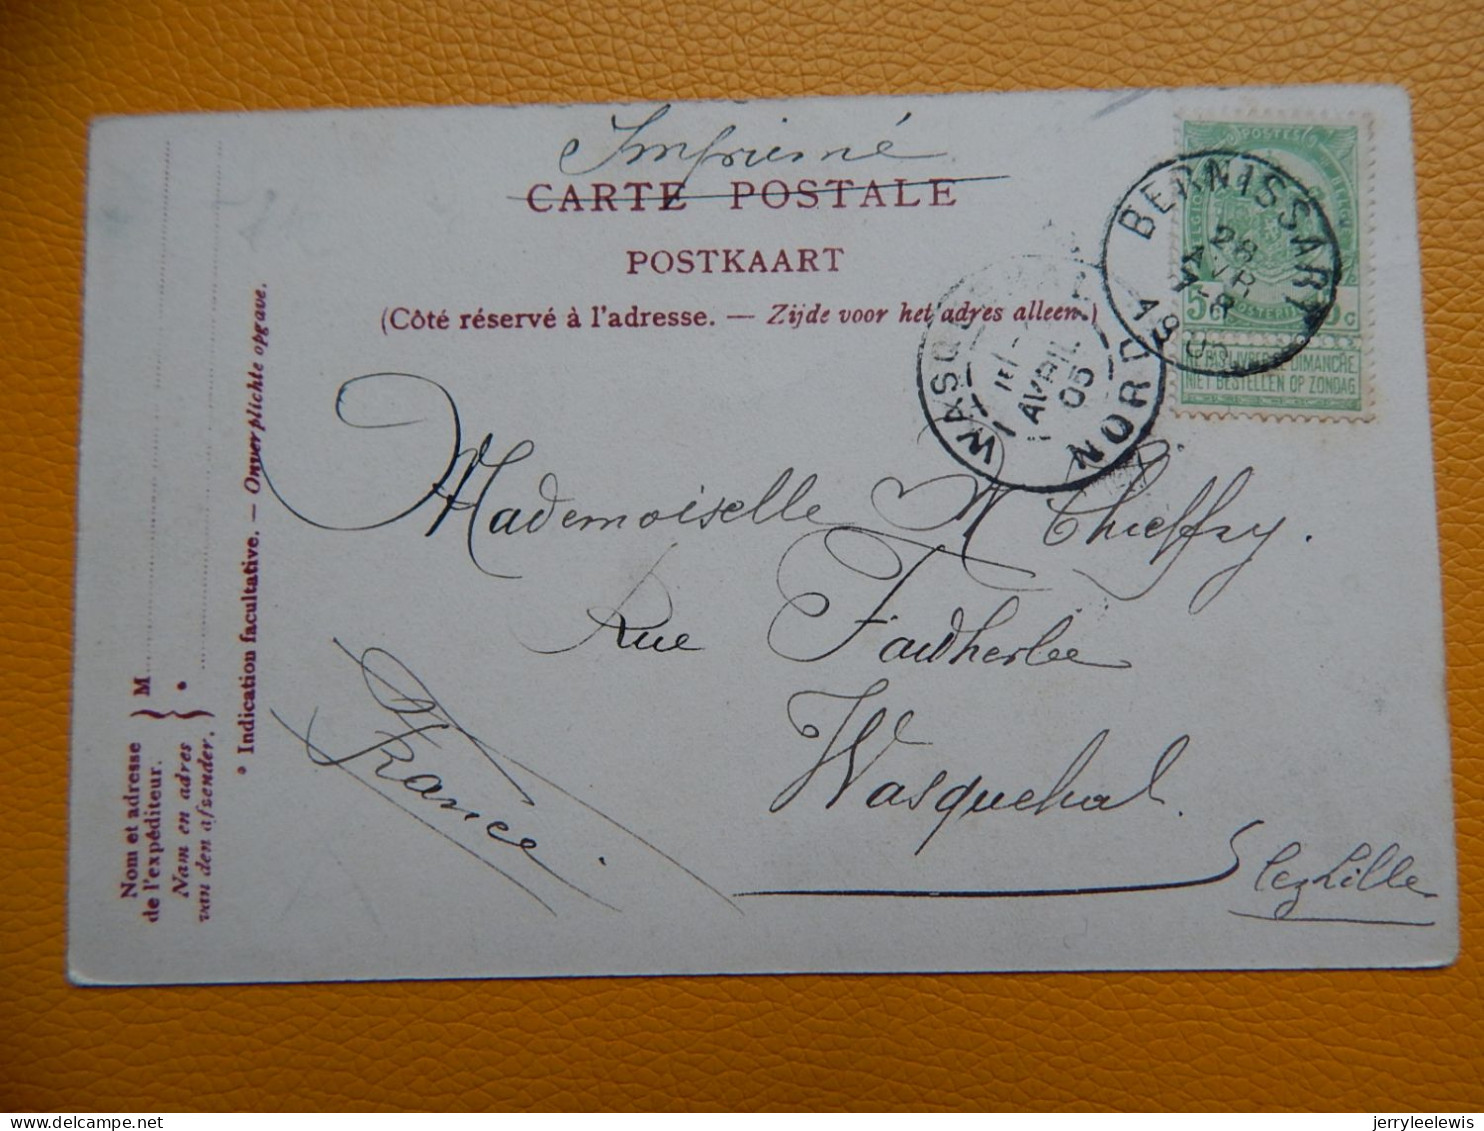 Imprimé
CARTE POSTALE
POSTKAART
(Côté réservé à l'adresse. — Zijde voor het adres alleen.)
POSTES
BERNISSART
28
AVR
7-8
1905
5 5c
NE PAS LIVRER LE DIMANCHE
NIET BESTELLEN OP ZONDAG
WASQUEHAL
AVRIL
05
NORD
Mademoiselle M Thieffry.
Rue Faidherbe
Wasquehal.
Lez Lille
France.
* Indication facultative. — Onverplichte opgave.
Nom et adresse
de l'expéditeur.
Nam en adres
van den afzender.
M
jerryleelewis